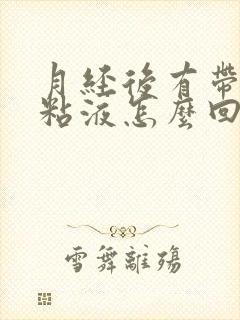 月經後有帶
粘液怎麼回
雪舞離殤